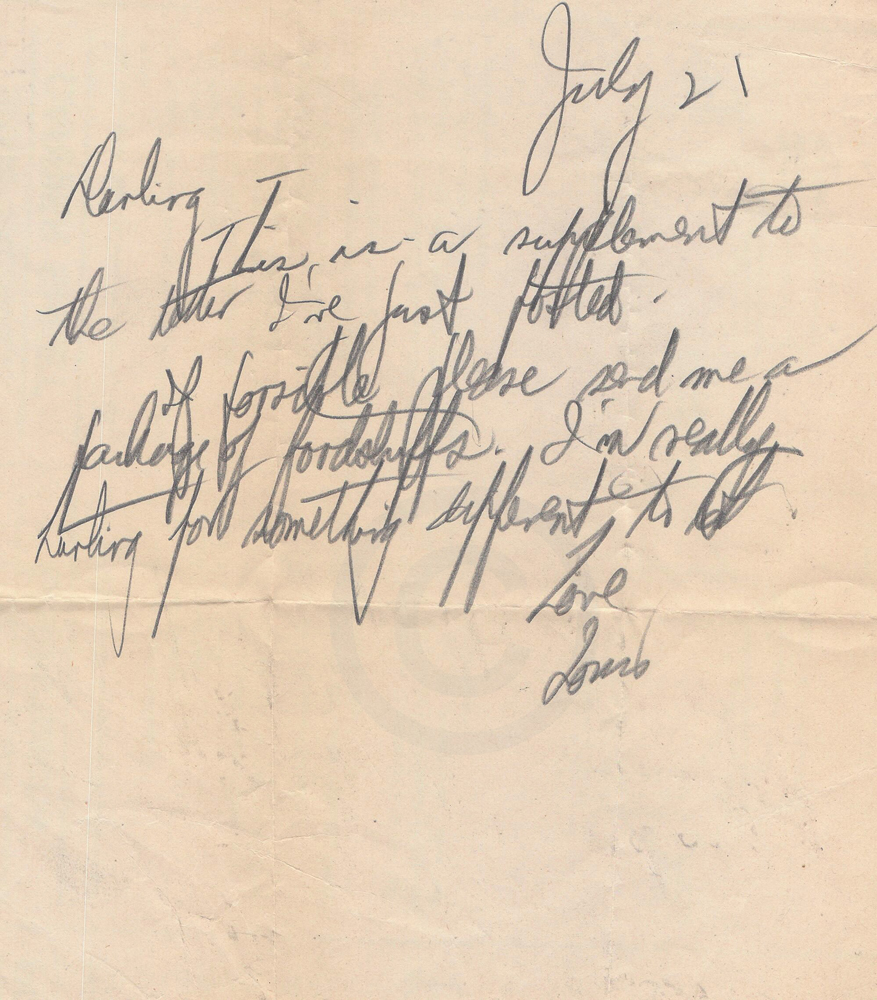 July 21
Darling
This is a supplement to
the letter I've just posted.
If possible please send me a
package of foodstuffs. I'm really
darling for something different to eat
Love
Louis